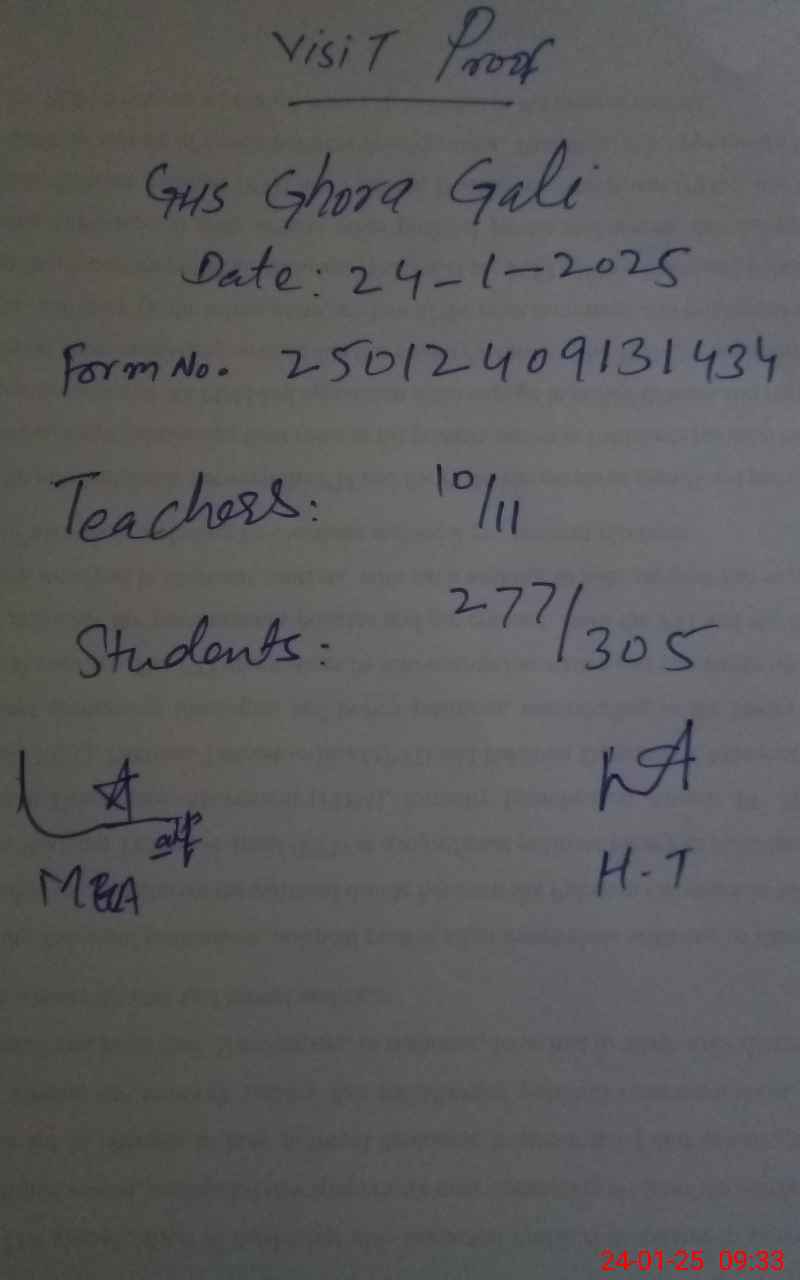 Visit Proof
GHS Ghora Gali
Date: 24-1-2025
Form No. 25012409131434
Teachers: 10/11
Students: 277/305
MEA
H-T
24-01-25 09:33